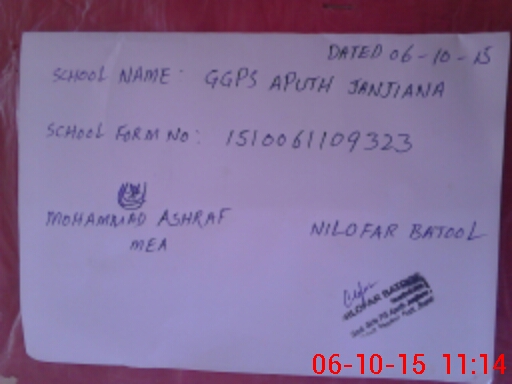 DATED 06-10-15
SCHOOL NAME: GGPS APUTH JANJIANA
SCHOOL FORM NO: 1510061109323
MOHAMMAD ASHRAF
MEA
NILOFAR BATOOL
NILOFAR BATOOL
06-10-15 11:14